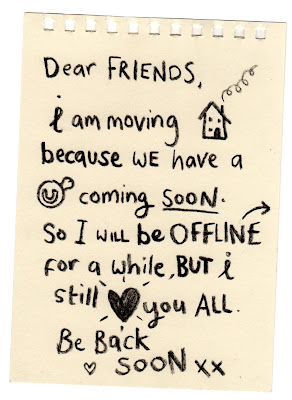 Dear FRIENDS,
i am moving
because WE have a
coming SOON.
So I WILL be OFFLINE
for a while, BUT i
still you ALL.
Be Back
SOON xx